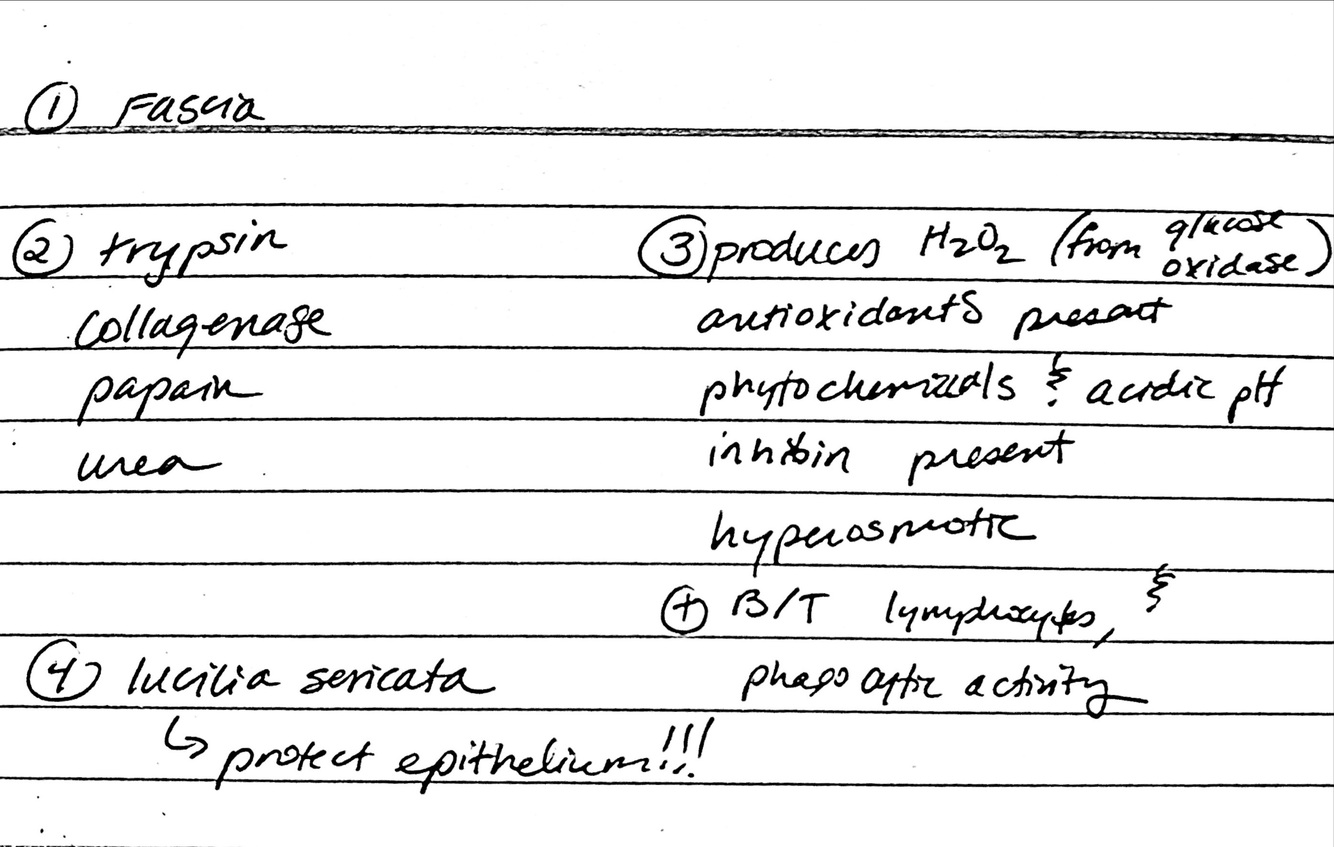 ① Fascia
② trypsin
collagenase
papain
urea
③ produces H₂O₂ (from glucose oxidase)
antioxidants present
phytochemicals & acidic pH
inhibin present
hyperosmotic
⊕ B/T lymphocytes, &
phagocytic activity
④ lucilia sericata
↳ protect epithelium!!!